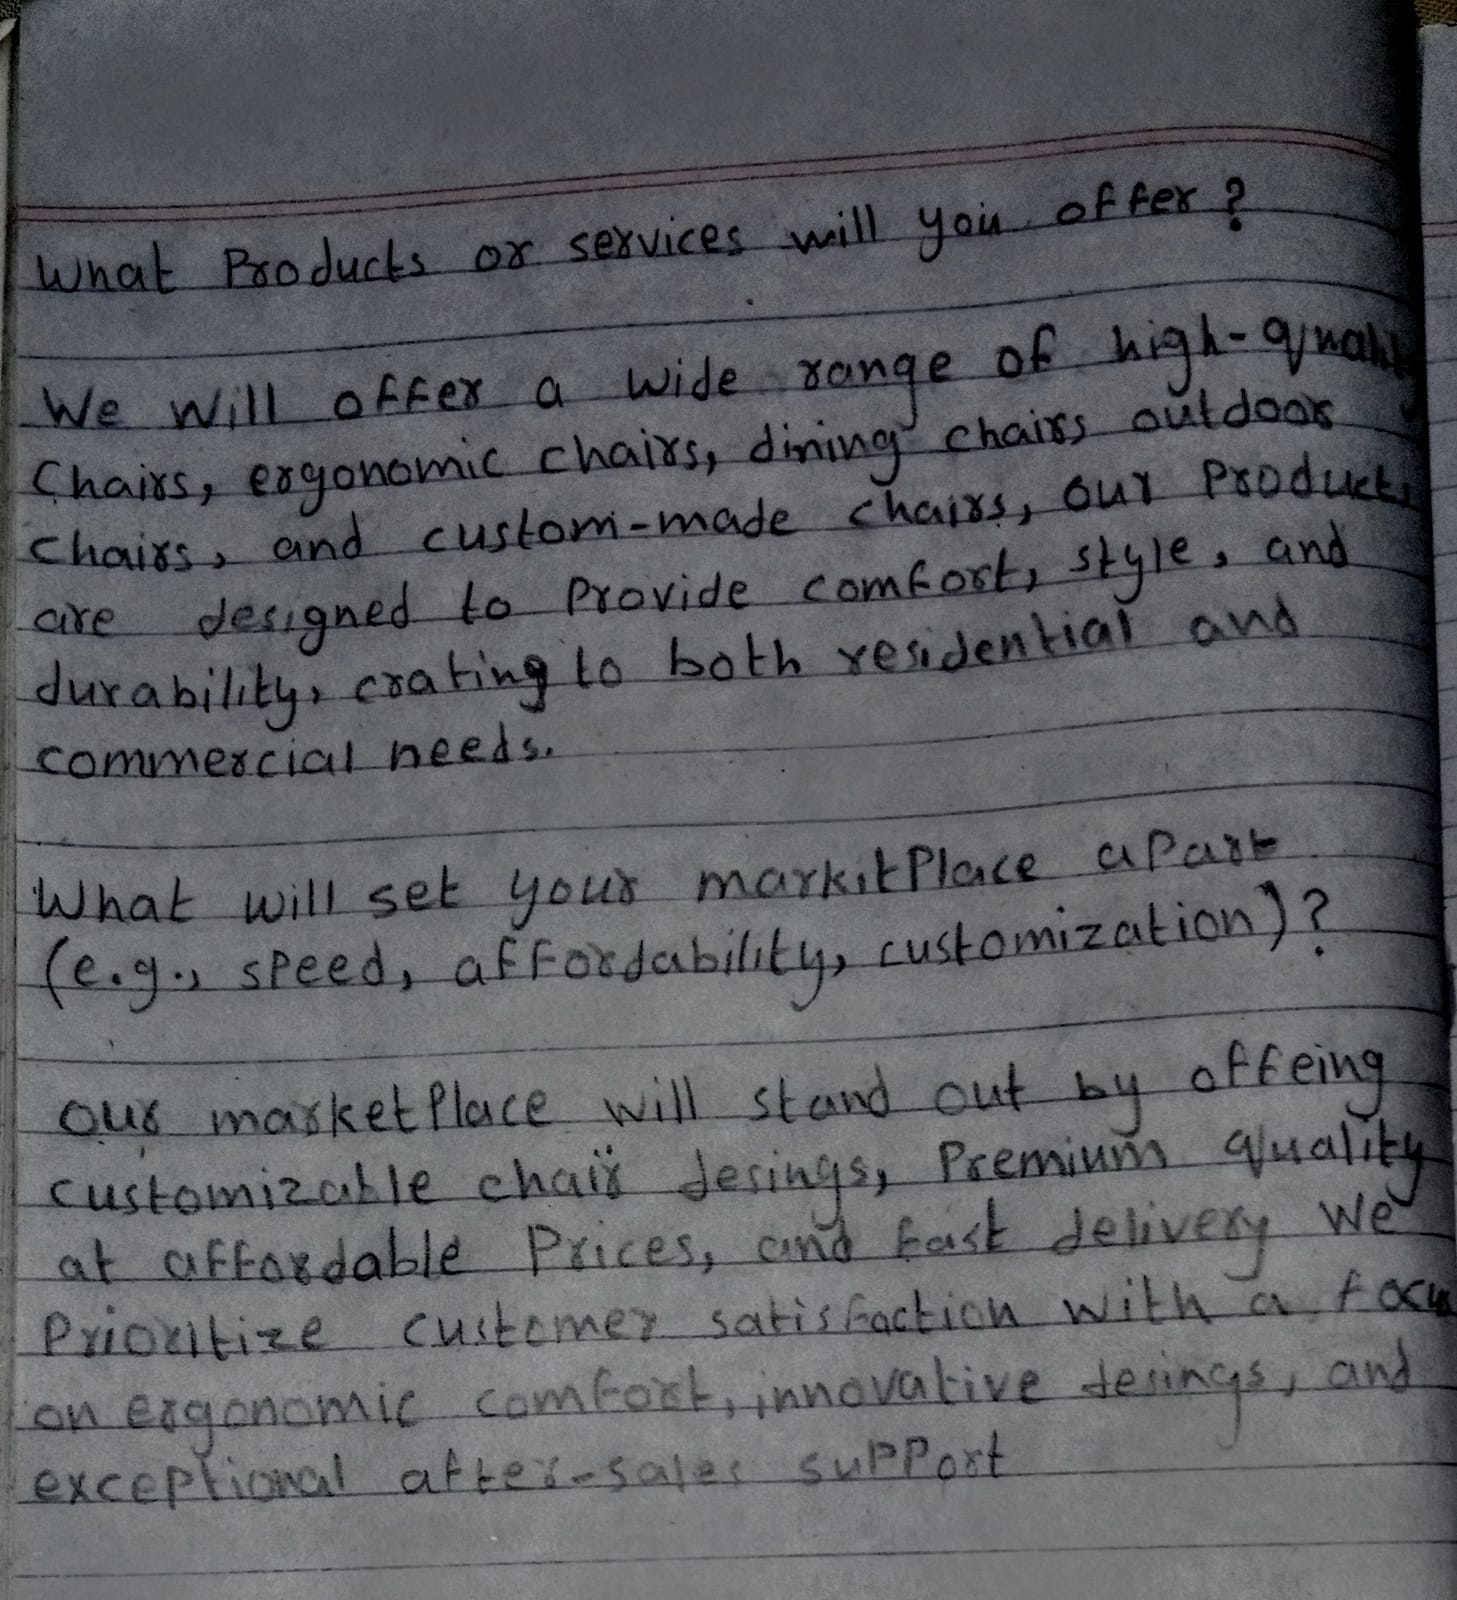 What Products or services will you offer?
We Will offer a wide range of high-quality
Chairs, ergonomic chairs, dining chairs outdoor
chairs, and custom-made chairs, our Products
are designed to Provide comfort, style, and
durability, crating to both residential and
commercial needs.
What will set your markitPlace aPart
(e.g., speed, affordability, customization)?
our marketPlace will stand out by offeing
customizable chair desings, Premium quality
at affordable Prices, and fast delivery We
Prioritize customer satisfaction with a focus
on ergonomic comfort, innovative desings, and
exceptional after-sales suPPort